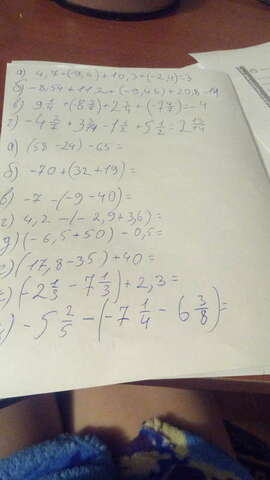 а) 4,7+(-9,6)+10,3+(-2,4)=3
б) -8,54+11,2+(-9,46)+20,8=14
в) 9 +(-8 )+2 +(-7 )=-4
г) -4 +3 -1 +5 1/2=2 13/14
а) (58-24)-65=
б) -70+(32+19)=
в) -7-(-9-40)=
г) 4,2-(-2,9+3,6)=
д) (-6,5+50)-0,5=
е) (17,8-35)+40=
(-2 1/3 - 7 1/3)+2,3=
-5 2/5 - (-7 1/4 - 6 3/8)=